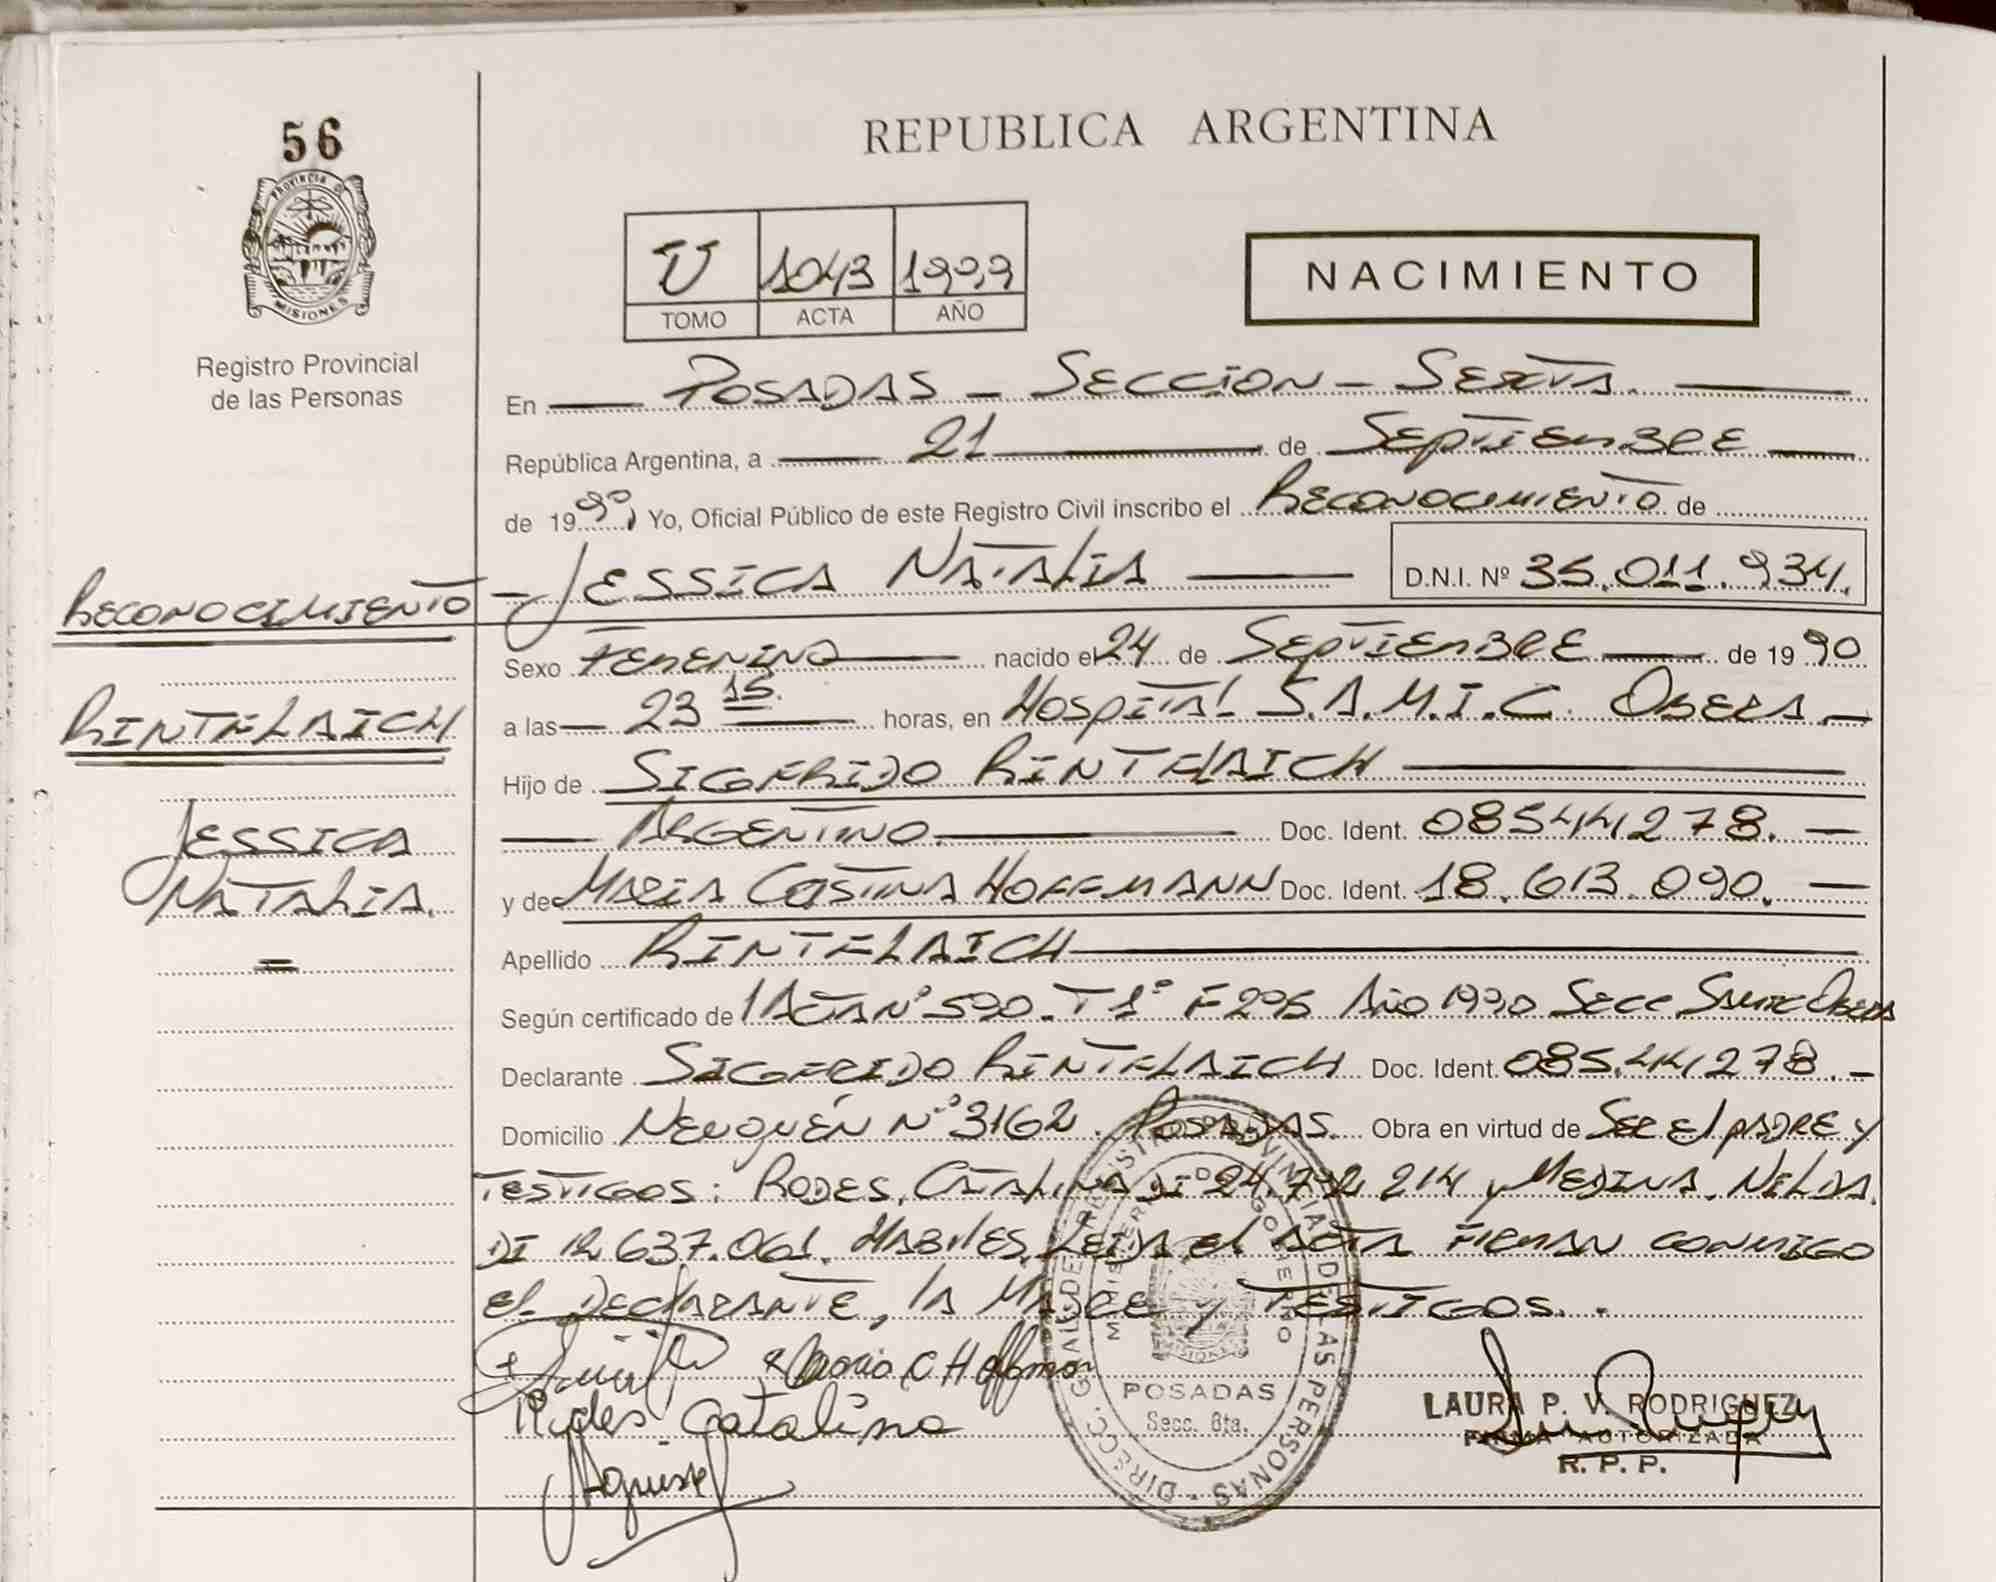 56
PROVINCIA DE
MISIONES
Registro Provincial
de las Personas
REPUBLICA ARGENTINA
U 1043 1999
TOMO ACTA AÑO
NACIMIENTO
En POSADAS - SECCION - SEXTA.
República Argentina, a 21 de SEPTIEMBRE
de 1999 Yo, Oficial Público de este Registro Civil inscribo el RECONOCIMIENTO de
- JESSICA NATALIA D.N.I. Nº 35.011.934.
RECONOCIMIENTO
RINTELAICH
JESSICA
NATALIA.
Sexo FEMENINO nacido el 24 de SEPTIEMBRE de 1990
a las 23 15 horas, en HOSPITAL S.A.M.I.C. OBERA -
Hijo de SIGFRIDO RINTELAICH
ARGENTINO. Doc. Ident. 08544278. -
y de MARIA CRISTINA HOFFMANN Doc. Ident. 18.613.090. -
Apellido RINTELAICH
Según certificado de ACTA Nº 590. T 1º F 295 AÑO 1990 SECC SAMIC OBERA
Declarante SIGFRIDO RINTELAICH Doc. Ident. 08544278. -
Domicilio NEUQUÉN Nº 3162. POSADAS. Obra en virtud de SER El PADRE y
TESTIGOS: RODES, CATALINA DI 24.792.214 y MEDINA, NELDA.
DI 12.637.061. HABILES, LEIDA el ACTA FIRMAN CONMIGO
El DECLARANTE, lA MADRE y TESTIGOS.
Maria C Hoffman
Rodes Catalina
DIRECC. GRAL. DE REGISTRO PROVINCIAL DE LAS PERSONAS
MINISTERIO DE GOBIERNO
MISIONES
POSADAS
Secc. 6ta.
LAURA P. V. RODRIGUEZ
FIRMA AUTORIZADA
R. P. P.